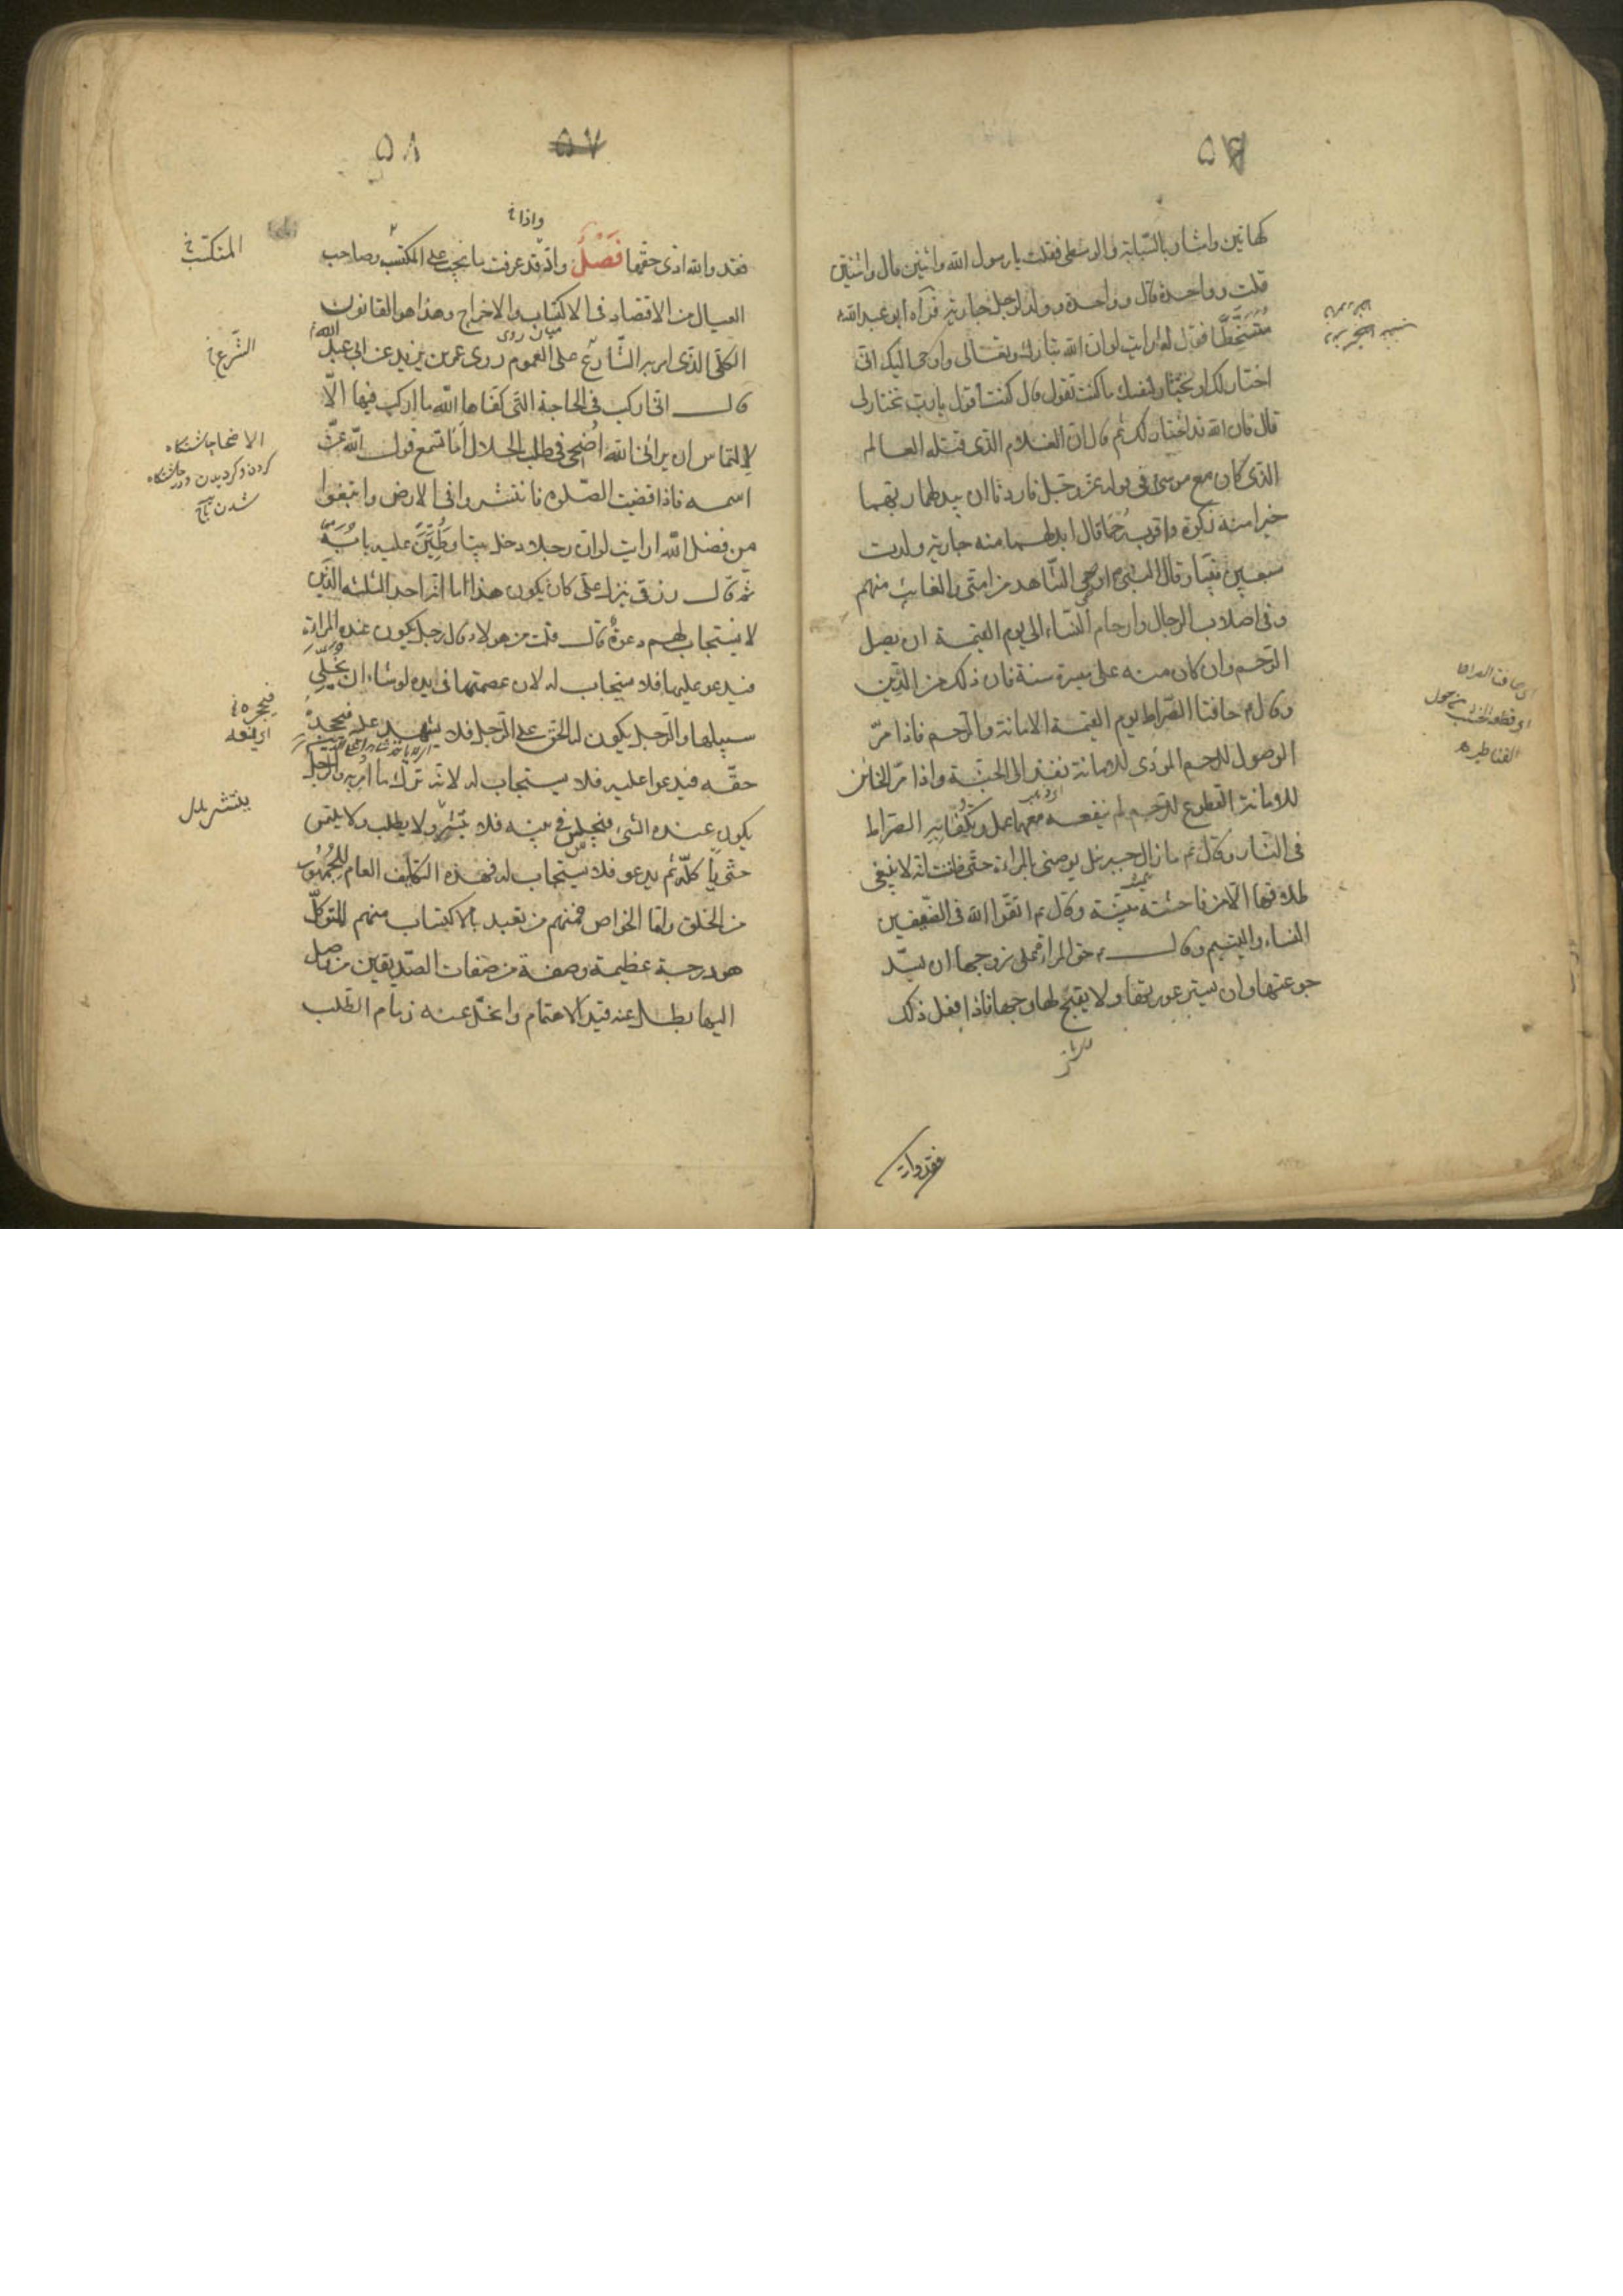 ۵۷
كهاتين واشار بالسّبّابة والوسطى فقلت يا رسول الله واثنين قال واثنتين
قلت وواحدة قال وواحدة وولد لرجل جارية فرآه ابو عبد الله
متسخّطًا فقال له ارايت لو ان الله تبارك وتعالى واوحى اليك انّى
اختار لك او تختار لنفسك ما كنت تقول قال كنت اقول يا ربّ تختار لى
قال فان الله قد اختار لك ثم قال ان الغلام الذى قتله العالم
الذى كان مع موسى فى قوله عزّ وجلّ فاردنا ان يبدلهما ربّهما
خيرا منه زكوة واقرب رُحما قال ابدلهما منه جارية ولدت
سبعين نبيّا وقال النبىّ اوصى الشّاهد من امّتى والغائب منهم
وفى اصلاب الرجال وارحام النّساء الى يوم القيمة ان يصل
الرّحم وان كان منه على مسيرة سنة فان ذلك من الدّين
وقال م حافتا الصّراط يوم القيمة الامانة والرّحم فاذا مرّ
الوصول للرحم المؤدى للامانة نفذ الى الجنّة واذا مرّ الخائن
للامانة القطوع للرّحم لم ينفعه معهما عمل وتكفّأ به الصّراط
فى النّار وقال م ما زال جبرئيل يوصينى بالمراة حتّى ظننت انّه لا ينبغى
طلاقها الّا من فاحشة مبيّنة وقال م اتّقوا الله فى الضّعيفين
النساء واليتيم وقال م حق المراة على زوجها ان يسدّ
جوعتها وان يستر عورتها ولا يقبّح لها وجها فاذا فعل ذلك
اى حافتا
القناطير
فقد والله
۵۷
۵۸
واذا خ
فقد والله ادى حقها فَصْلٌ واذ قد عرفت ما يجب على المكتسب وصاحب
العيال من الاقتصاد فى الاكتساب والاخراج وهذا هو القانون
ميان روى
الكلّى الذى امر به الشّارع على العموم روى عمر بن يزيد عن ابى عبد الله
قال انّى اركب فى الحاجة التى كفاها الله ما اركب فيها الّا
لالتماس ان يرانى الله اُضحى فى طلب الحلال اَما تسمع قول الله عزّ
اسمه فاذا قضيت الصّلوة فانتشروا فى الارض وابتغوا
من فضل الله ارايت لو ان رجلا دخل بيتا وطَيَّنَ عليه بابه
ثم قال رزقى ينزل علىّ كان يكون هذا اما انّه احد الثلثه الذين
لا يستجاب لهم دعوة قال قلت من هولاء قال رجل يكون عنده المراة
فيدعو عليها فلا يستجاب له لان عصمتها فى يده لو شاء ان يخلّى
سبيلها والرّجل يكون له الحق على الرّجل فلا يشهد عليه فيجحده
حقّه فيدعوا عليه فلا يستجاب له لانّه ترك ما اُمر به والرّجل
يكون عنده الشىء فيجلس فى بيته فلا ينتشر ولا يطلب ولا يلتمس
حتّى ياكله ثم يدعو فلا يستجاب له فهذه التكليف العام للجُمهُور
من الخلق وامّا الخواص فمنهم من تعبد بالاكتساب منهم المتوكّل
هو درجة عظيمة وصفة من صفات الصّديقين من وصل
اليها بطل عنه قيد الاهتمام وانحلّ عنه زمام الطّلب
المتكسّب خ
الشّرع خ
الاضحا چاشتگاه
كردن وگرديدن ودر چاشتگاه
شدن تاج
فيجحده خ
اى يمنعه
ينتشر بدل